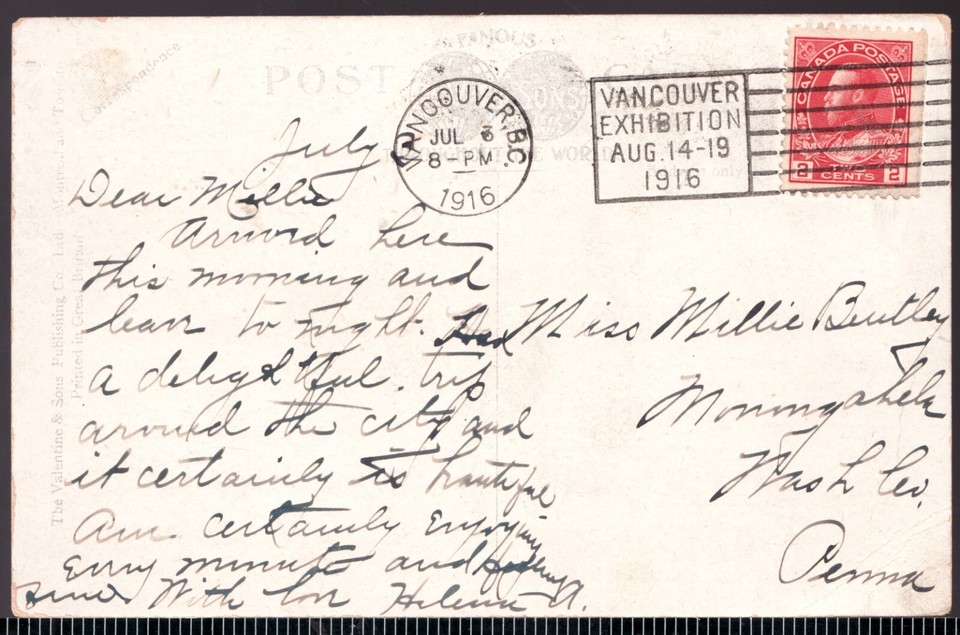 FAMOUS
POST CARD
THROUGHOUT THE WORLD
Correspondence
only
The Valentine & Sons Publishing Co. Ltd. Montreal and Toronto
Printed in Great Britain
VANCOUVER, B.C.
JUL 3
8 - PM
1916
VANCOUVER
EXHIBITION
AUG. 14-19
1916
CANADA POSTAGE
2 CENTS 2
July
Dear Millie
Arrived here
this morning and
leave to night. Had
a delightful trip
around the city and
it certainly is beautiful
Am certainly enjoying
every minute and feeling
fine. With love Helena A.
Miss Millie Bentley
Monongahela
Wash Co.
Penna